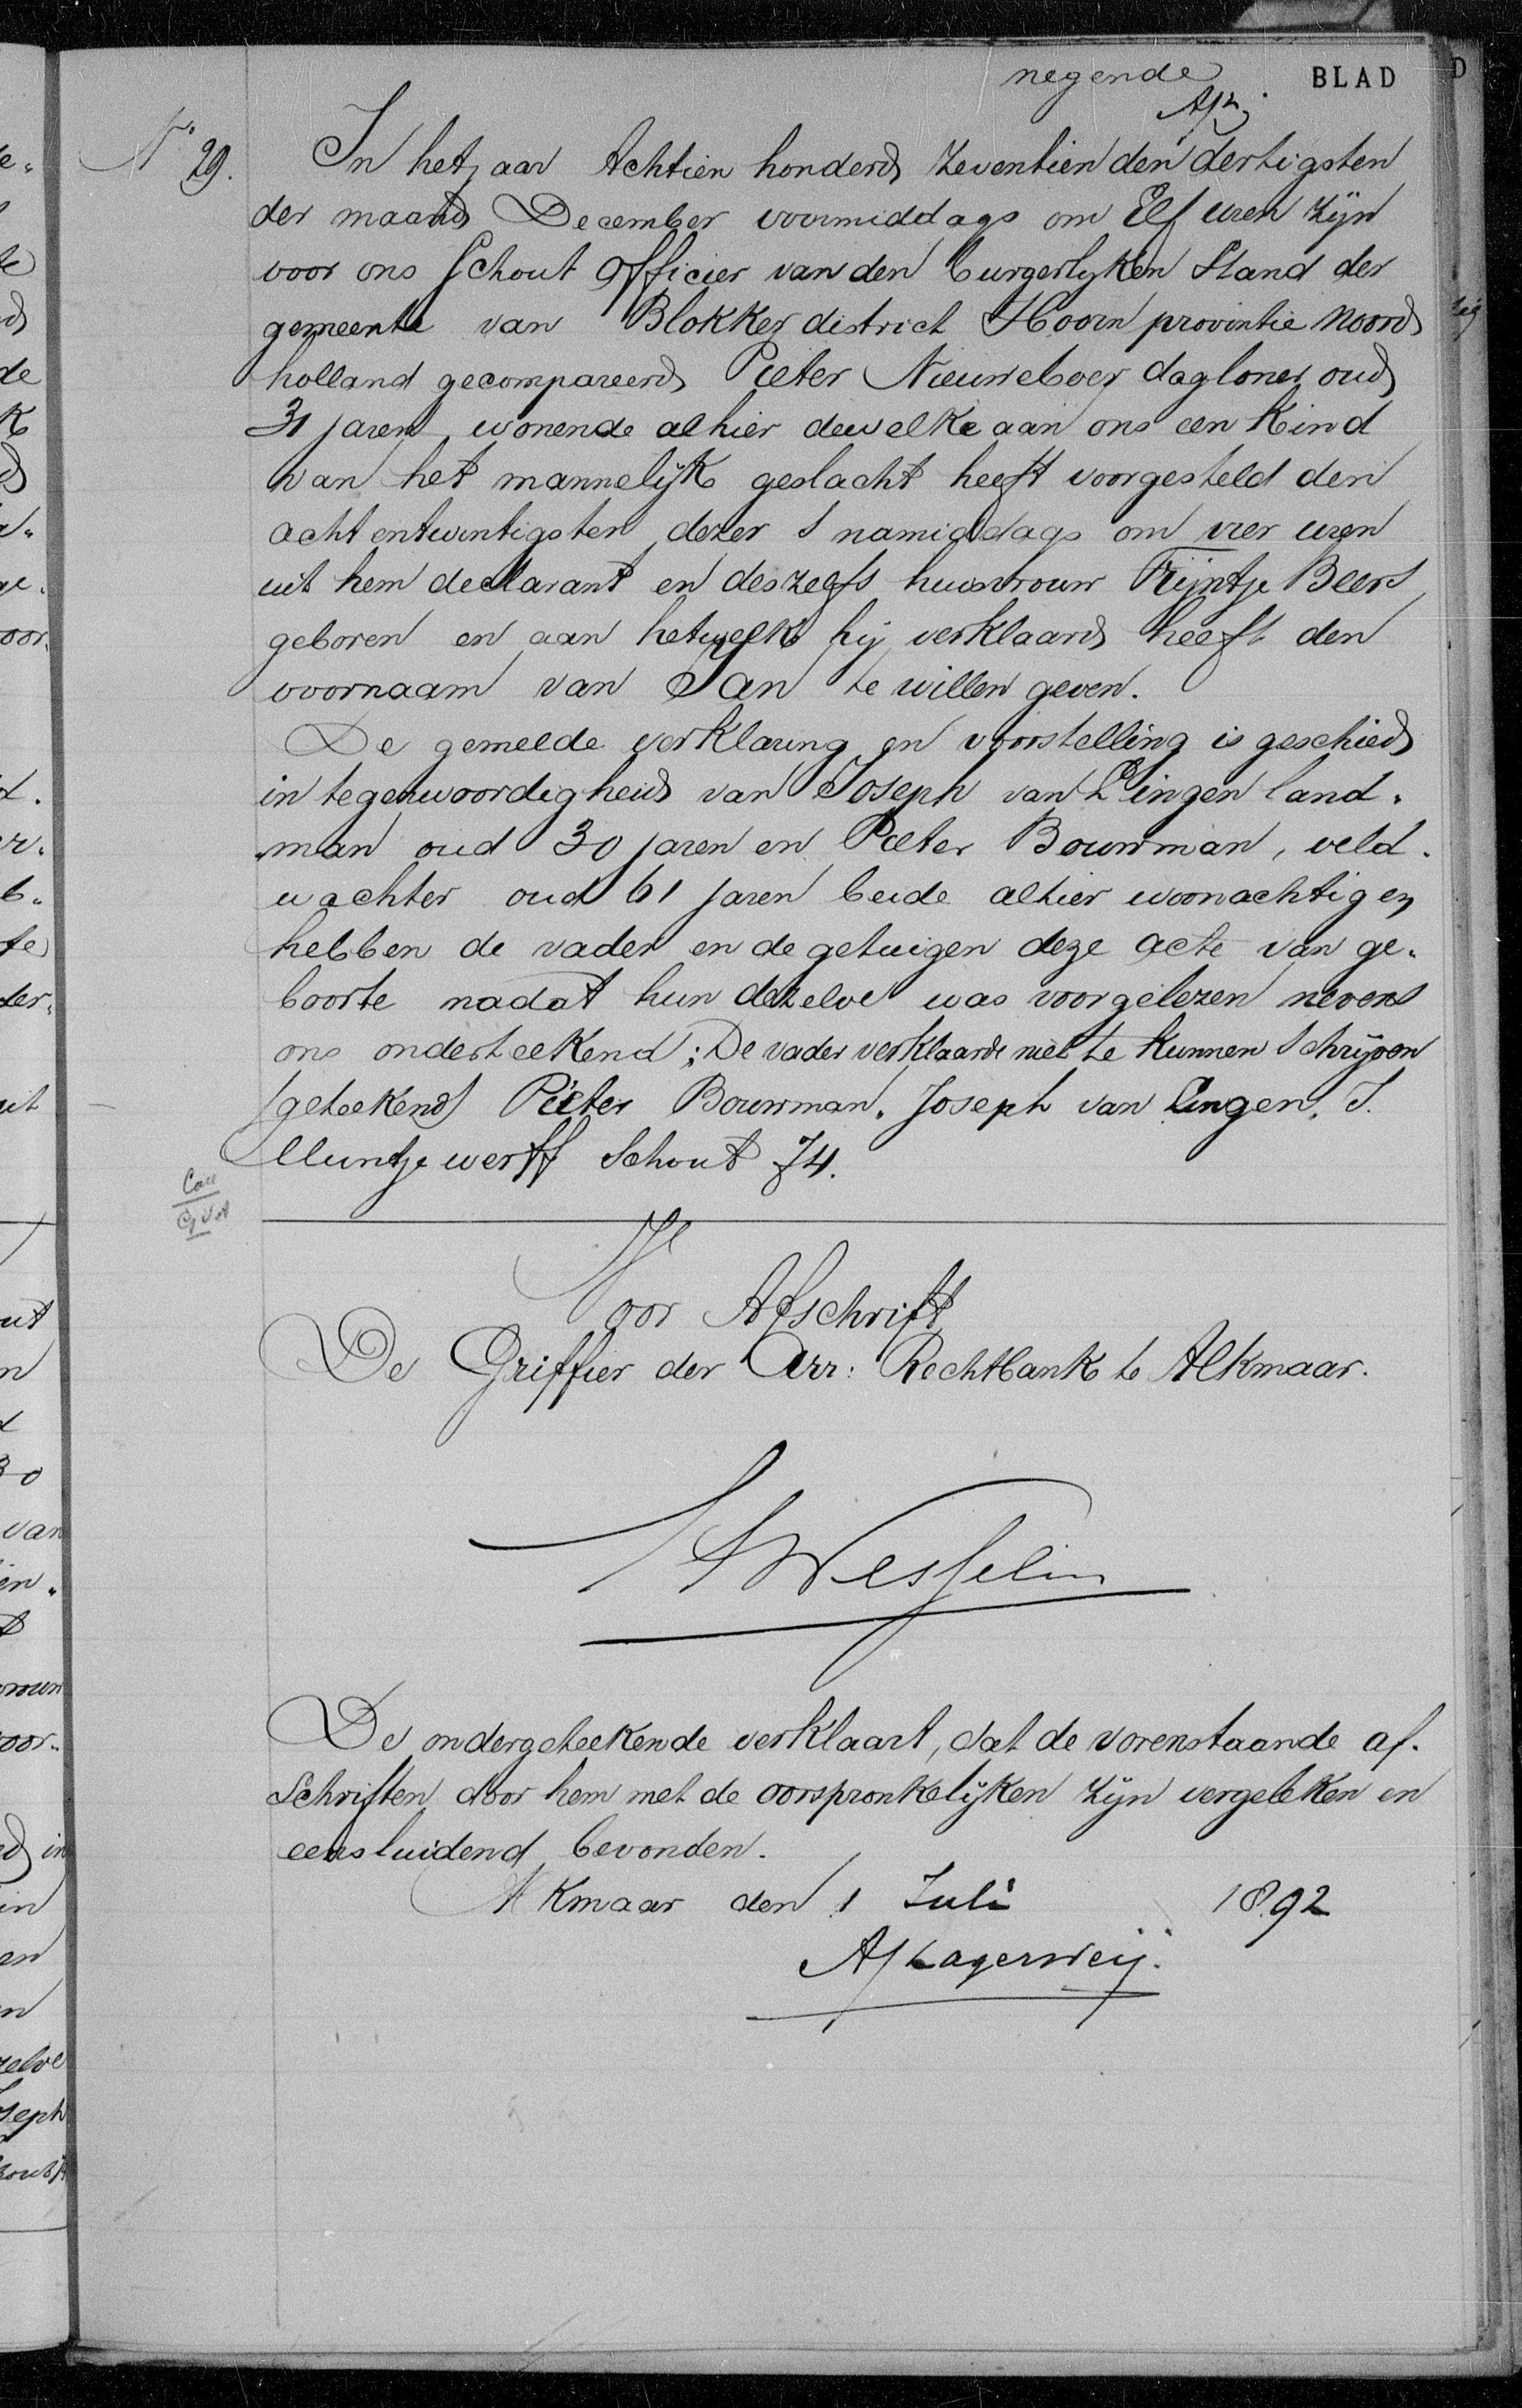 negende BLAD
No 29. In het jaar Achtien honderd Zeventien den dertigsten
der maand December voormiddags om Elf uren zijn
voor ons Schout Officier van den burgerlyken Stand der
gemeente van Blokker district Hoorn provintie Noord
holland gecompareerd Pieter Nieuweboer dagloner oud
31 jaren wonende alhier dewelke aan ons een kind
van het mannelijk geslacht heeft voorgesteld den
achtentwintigsten dezer s namiddags om vier uren
uit hem declarant en deszelfs huisvrouw Trijntje Beers
geboren en aan hetwelk hij verklaard heeft den
voornaam van Jan te willen geven.
De gemelde verklaring en voorstelling is geschied
in tegenwoordigheid van Joseph van Lingen land„
„man oud 30 jaren en Pieter Bouwman, veld.
wachter oud 61 jaren beide alhier woonachtig en
hebben de vader en de getuigen deze acte van ge„
boorte nadat hun dezelve was voorgelezen nevens
ons onderteekend; De vader verklaarde niet te kunnen schrijven
(geteekend) Pieter Bouwman. Joseph van Lingen. J.
Muntjewerff Schout 74.
Voor Afschrift
De Griffier der Arr: Rechtbank te Alkmaar.
De ondergeteekende verklaart, dat de vorenstaande af.
schriften door hem met de oorspronkelijken zijn vergeleken en
eensluidend bevonden.
Alkmaar den 1 Juli 1892
Lagerweij.